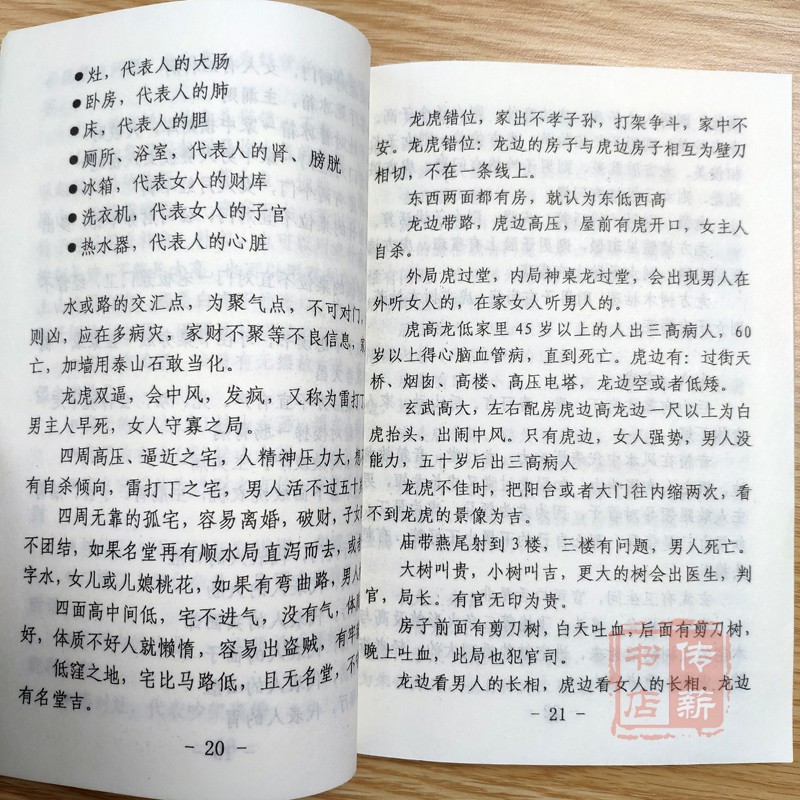 ●灶，代表人的大肠
●卧房，代表人的肺
●床，代表人的胆
●厕所、浴室，代表人的肾、膀胱
●冰箱，代表女人的财库
●洗衣机，代表女人的子官
●热水器，代表人的心脏
水或路的交汇点，为聚气点，不可对门，
则凶，应在多病灾，家财不聚等不良信息，
亡，加墙用泰山石敢当化。
龙虎双逼，会中风，发疯，又称为雷打
男主人早死，女人守寡之局。
四周高压、逼近之宅，人精神压力大，
有自杀倾向，雷打丁之宅，男人活不过五十
四周无靠的孤宅，容易离婚，破财，子女
不团结，如果名堂再有顺水局直泻而去，或
字水，女儿或儿媳桃花，如果有弯曲路，男人
四面高中间低，宅不进气，没有气，体质
好，体质不好人就懒惰，容易出盗贼，有牢
低窪之地，宅比马路低，且无名堂，不
有名堂吉。
- 20 -
龙虎错位，家出不孝子孙，打架争斗，家中不
安。龙虎错位：龙边的房子与虎边房子相互为壁刀
相切，不在一条线上。
东西两面都有房，就认为东低西高
龙边带路，虎边高压，屋前有虎开口，女主人
自杀。
外局虎过堂，内局神桌龙过堂，会出现男人在
外听女人的，在家女人听男人的。
虎高龙低家里 45 岁以上的人出三高病人，60
岁以上得心脑血管病，直到死亡。虎边有：过街天
桥、烟囱、高楼、高压电塔，龙边空或者低矮。
玄武高大，左右配房虎边高龙边一尺以上为白
虎抬头，出闹中风。只有虎边，女人强势，男人没
能力，五十岁后出三高病人
龙虎不佳时，把阳台或者大门往内缩两次，看
不到龙虎的景像为吉。
庙带燕尾射到 3 楼，三楼有问题，男人死亡。
大树叫贵，小树叫吉，更大的树会出医生，判
官，局长。有官无印为贵。
房子前面有剪刀树，白天吐血，后面有剪刀树，
晚上吐血，此局也犯官司。
龙边看男人的长相，虎边看女人的长相。龙边
- 21 -
传新
书店